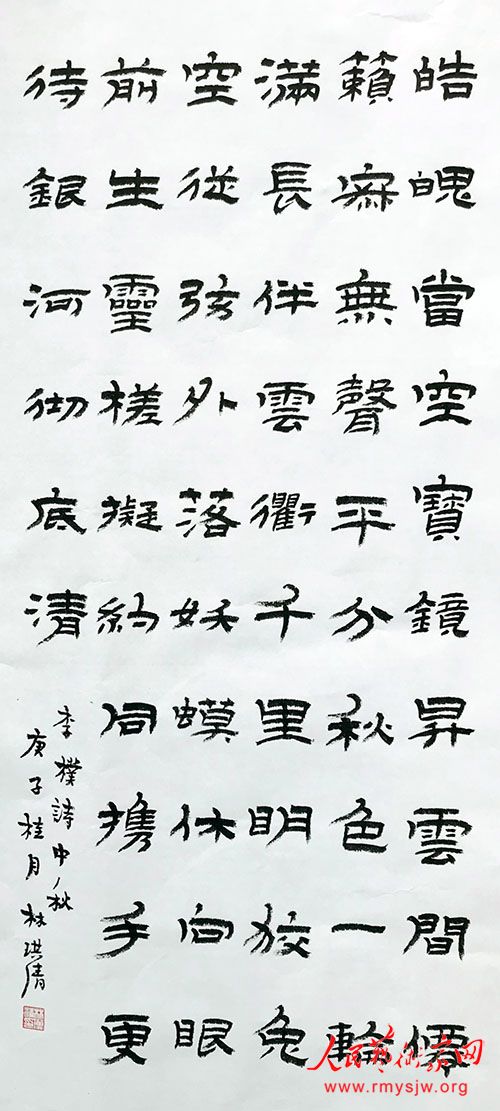 皓魄當空寶鏡昇雲間僊
籟寂無聲平分秋色一輪
滿長伴雲衢千里明狡兔
空從弦外落妖蟆休向眼
前生靈槎擬約同携手更
待銀河彻底清
李樸詩中秋
庚子桂月 林
人民艺术家网
www.rmysjw.org